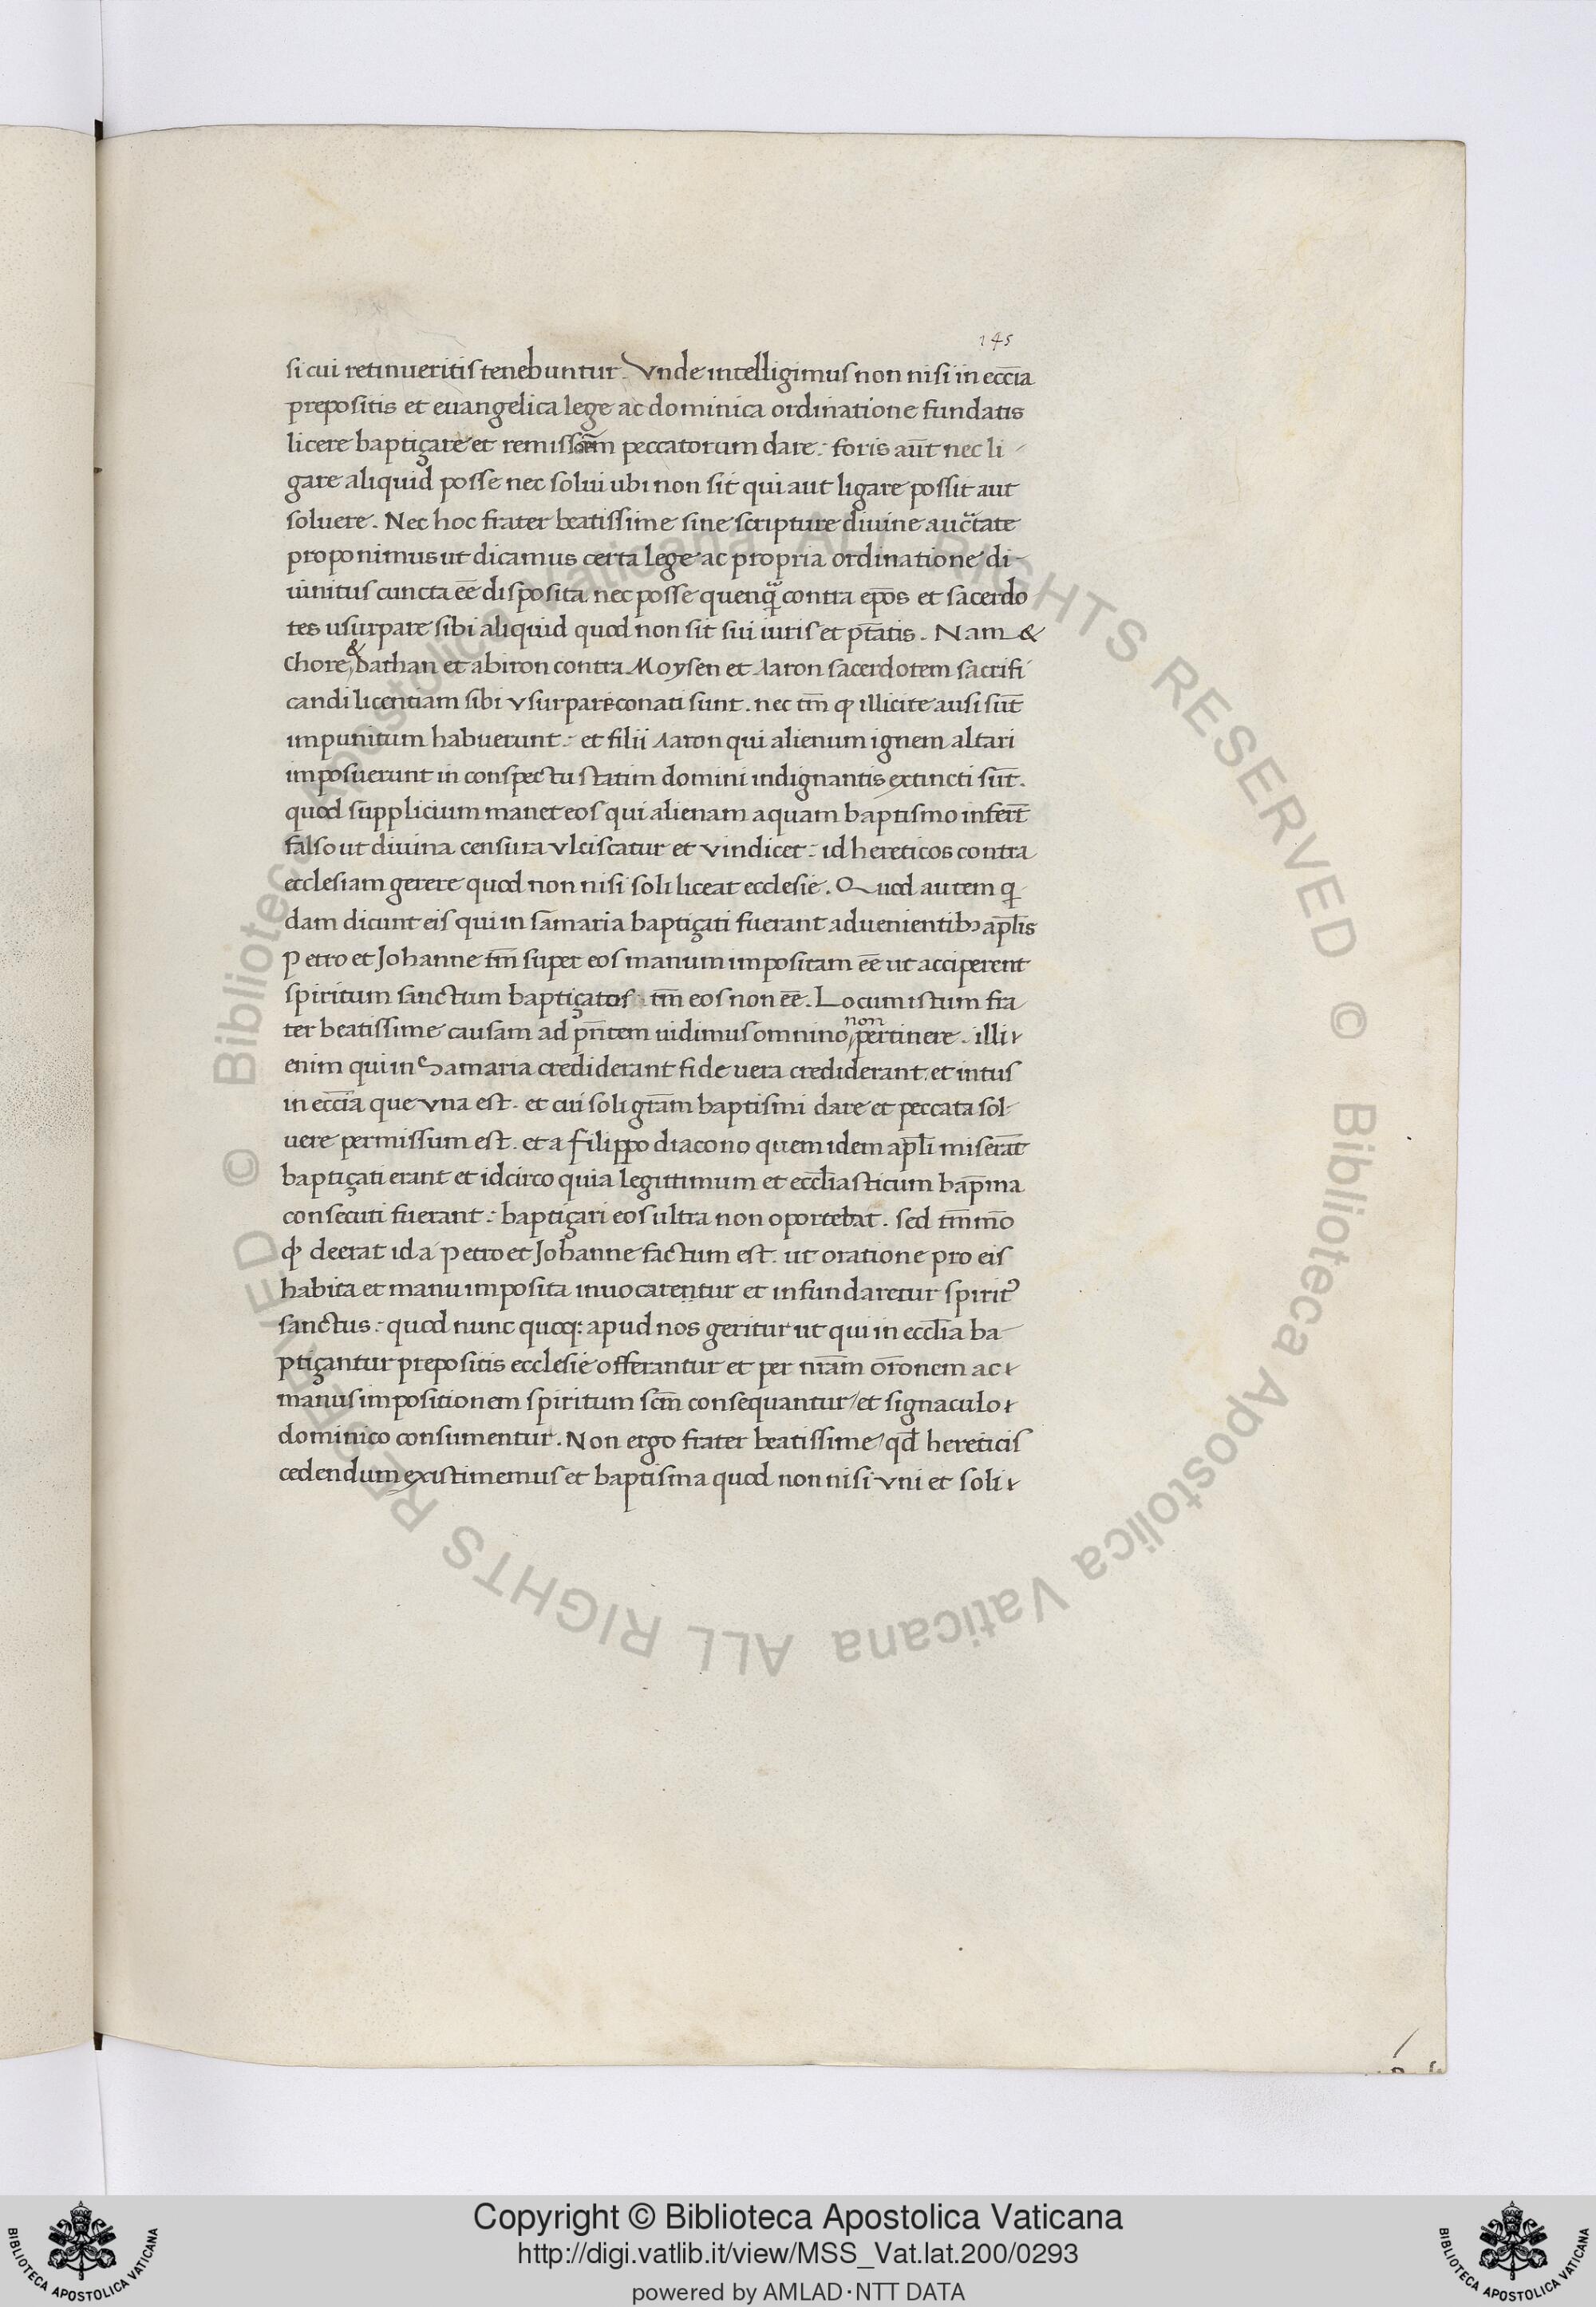 145
si cui retinueritis tenebuntur. Vnde intelligimus non nisi in ecc̄ia
prepositis et euangelica lege ac dominica ordinatione fundatis
licere baptiçare et remissōem peccatorum dare: foris aūt nec li-
gare aliquid posse nec solui ubi non sit qui aut ligare possit aut
soluere. Nec hoc frater beatissime sine scripture diuine auc̄tate
proponimus ut dicamus certa lege ac propria ordinatione di-
uinitus cuncta ēē disposita nec posse quenq̄ contra ep̄os et sacerdo
tes usurpare sibi aliquid quod non sit sui iuris et pt̄atis. Nam &
Chore & dathan et abiron contra Moysen et Aaron sacerdotem sacrifi
candi licentiam sibi vsurpare conati sunt. nec tm̄ ꝙ illicite ausi sūt
impunitum habuerunt: et filii Aaron qui alienum ignem altari
imposuerunt in conspectu statim domini indignantis extincti sūt.
quod supplicium manet eos qui alienam aquam baptismo infert̄
falso ut diuina censura vlciscatur et vindicet: id hereticos contra
ecclesiam gerere quod non nisi soli liceat ecclesie. Quod autem q
dam dicunt eis qui in samaria baptiçati fuerant aduenientibꝫ apl̄is
Petro et Johanne tm̄ super eos manum impositam ēē ut acciperent
spiritum sanctum baptiçatos tm̄ eos non ēē. Locum istum fra
ter beatissime causam ad pn̄tem uidimus omnino non pertinere. illi
enim qui in Samaria crediderant fide uera crediderant et intus
in ecc̄ia que vna est. et cui soli grām baptismi dare et peccata sol-
uere permissum est. et a filippo diacono quem idem apl̄i miserāt
baptiçati erant et idcirco quia legittimum et eccl̄iasticum bap̄ma
consecuti fuerant: baptiçari eos ultra non oportebat. sed tm̄mō
ꝙ deerat id a Petro et Johanne factum est. ut oratione pro eis
habita et manu imposita inuocarentur et infundaretur spiritꝰ
sanctus: quod nunc quoq: apud nos geritur ut qui in eccl̄ia ba-
ptiçantur prepositis ecclesie offerantur et per nrām ōronem ac
manus impositionem spiritum scm̄ consequantur/ et signaculo
dominico consumentur. Non ergo frater beatissime/ qđ hereticis
cedendum existimemus et baptisma quod non nisi vni et soli
© Biblioteca Apostolica Vaticana ALL RIGHTS RESERVED © Biblioteca Apostolica Vaticana ALL RIGHTS RESERVED
Copyright © Biblioteca Apostolica Vaticana
http://digi.vatlib.it/view/MSS_Vat.lat.200/0293
powered by AMLAD·NTT DATA
BIBLIOTECA APOSTOLICA VATICANA
BIBLIOTECA APOSTOLICA VATICANA